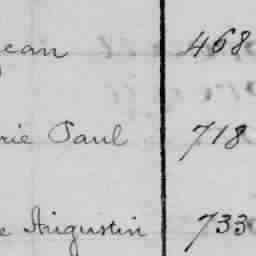 Jean 468
rie Paul 718
e Augustin 733